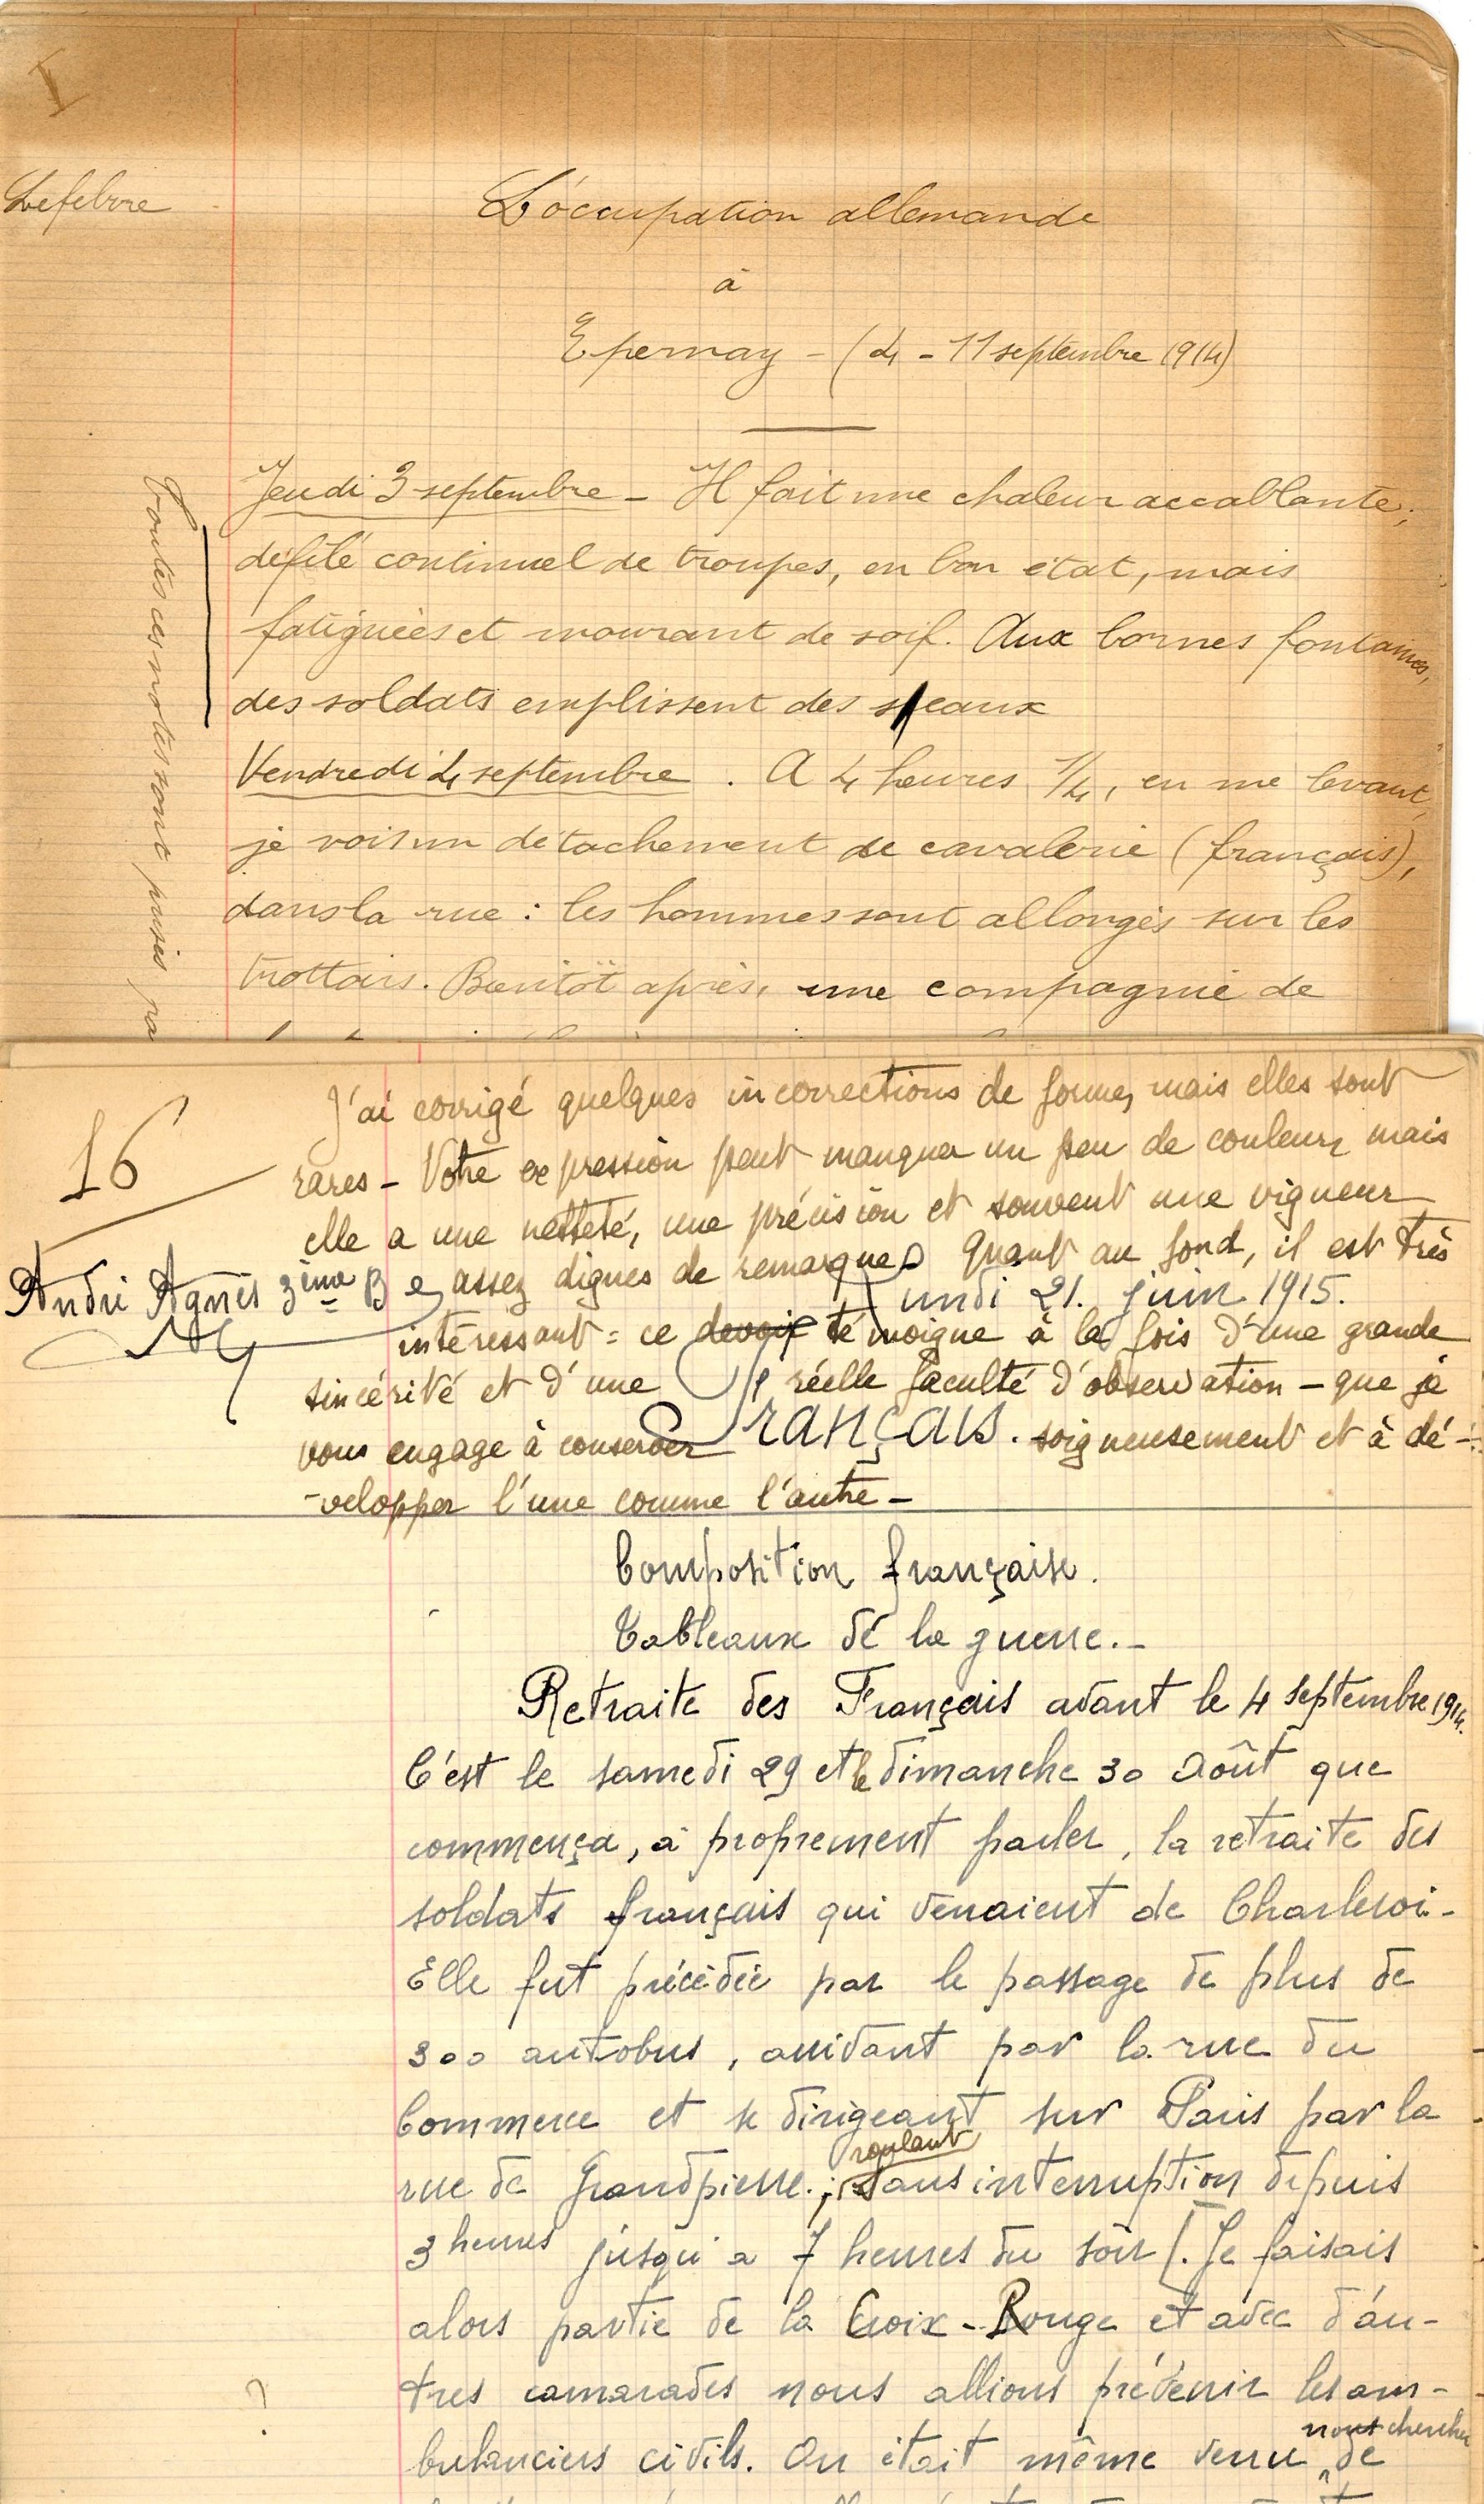 I
Lefebvre
L'occupation allemande
à
Epernay - (4 - 11 septembre 1914)
Jeudi 3 septembre - Il fait une chaleur accablante;
défilé continuel de troupes, en bon état, mais
fatiguées et mourant de soif. Aux bornes fontaines,
des soldats emplissent des seaux
Vendredi 4 septembre. A 4 heures 1/4, en me levant,
je vois un détachement de cavalerie (français),
dans la rue : les hommes sont allongés sur les
trottoirs. Bientôt après, une compagnie de
Toutes ces notes sont prises pa
16
J'ai corrigé quelques incorrections de forme, mais elles sont
rares - Votre expression peut manquer un peu de couleur, mais
elle a une netteté, une précision et souvent une vigueur
assez dignes de remarque. Quant au fond, il est très
André Agnès 3ème B
Lundi 21. juin 1915.
intéressant = ce devoir témoigne à la fois d'une grande
sincérité et d'une réelle faculté d'observation - que je
vous engage à conserver soigneusement et à dé-
-velopper l'une comme l'autre -
Français.
Composition française.
Tableaux de la guerre. -
Retraite des Français avant le 4 septembre 1914.
C'est le samedi 29 et le dimanche 30 Août que
commença, à proprement parler, la retraite des
soldats français qui venaient de Charleroi -
Elle fut précédée par le passage de plus de
300 autobus, arrivant par la rue du
Commerce et se dirigeant sur Paris par la
roulant
rue de Grandpierre.; sans interruption depuis
3 heures jusqu'a 7 heures du soir. Je faisais
alors partie de la Croix-Rouge et avec d'au-
tres camarades nous allions prévenir les am-
?
nous chercher
bulanciers civils. On était même venu de